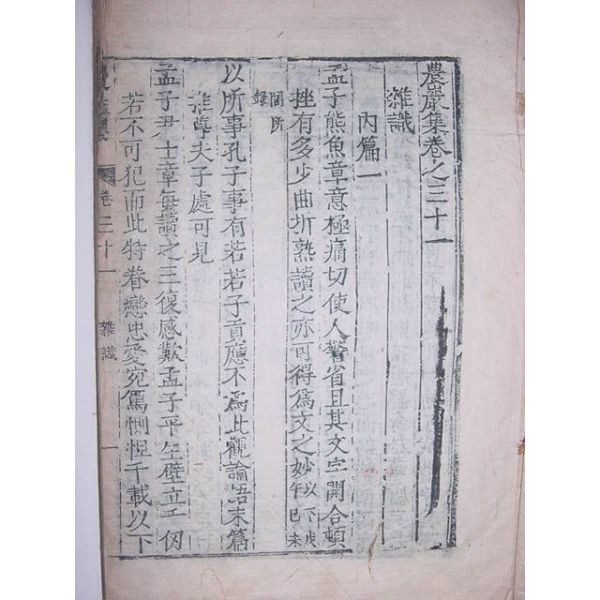 農巖集卷之三十一
雜識
內篇一
孟子熊魚章意極痛切使人警省且其文字開合頓
挫有多少曲折熟讀之亦可得爲文之妙以下戊午己未
間所錄
以所事孔子事有若若子貢應不爲此觀論語末篇
推尊夫子處可見
孟子尹士章每讀之三復感歎孟子平生壁立千仞
若不可犯而此特眷戀忠愛宛篤惻怛千載以下
卷三十一 雜識 一